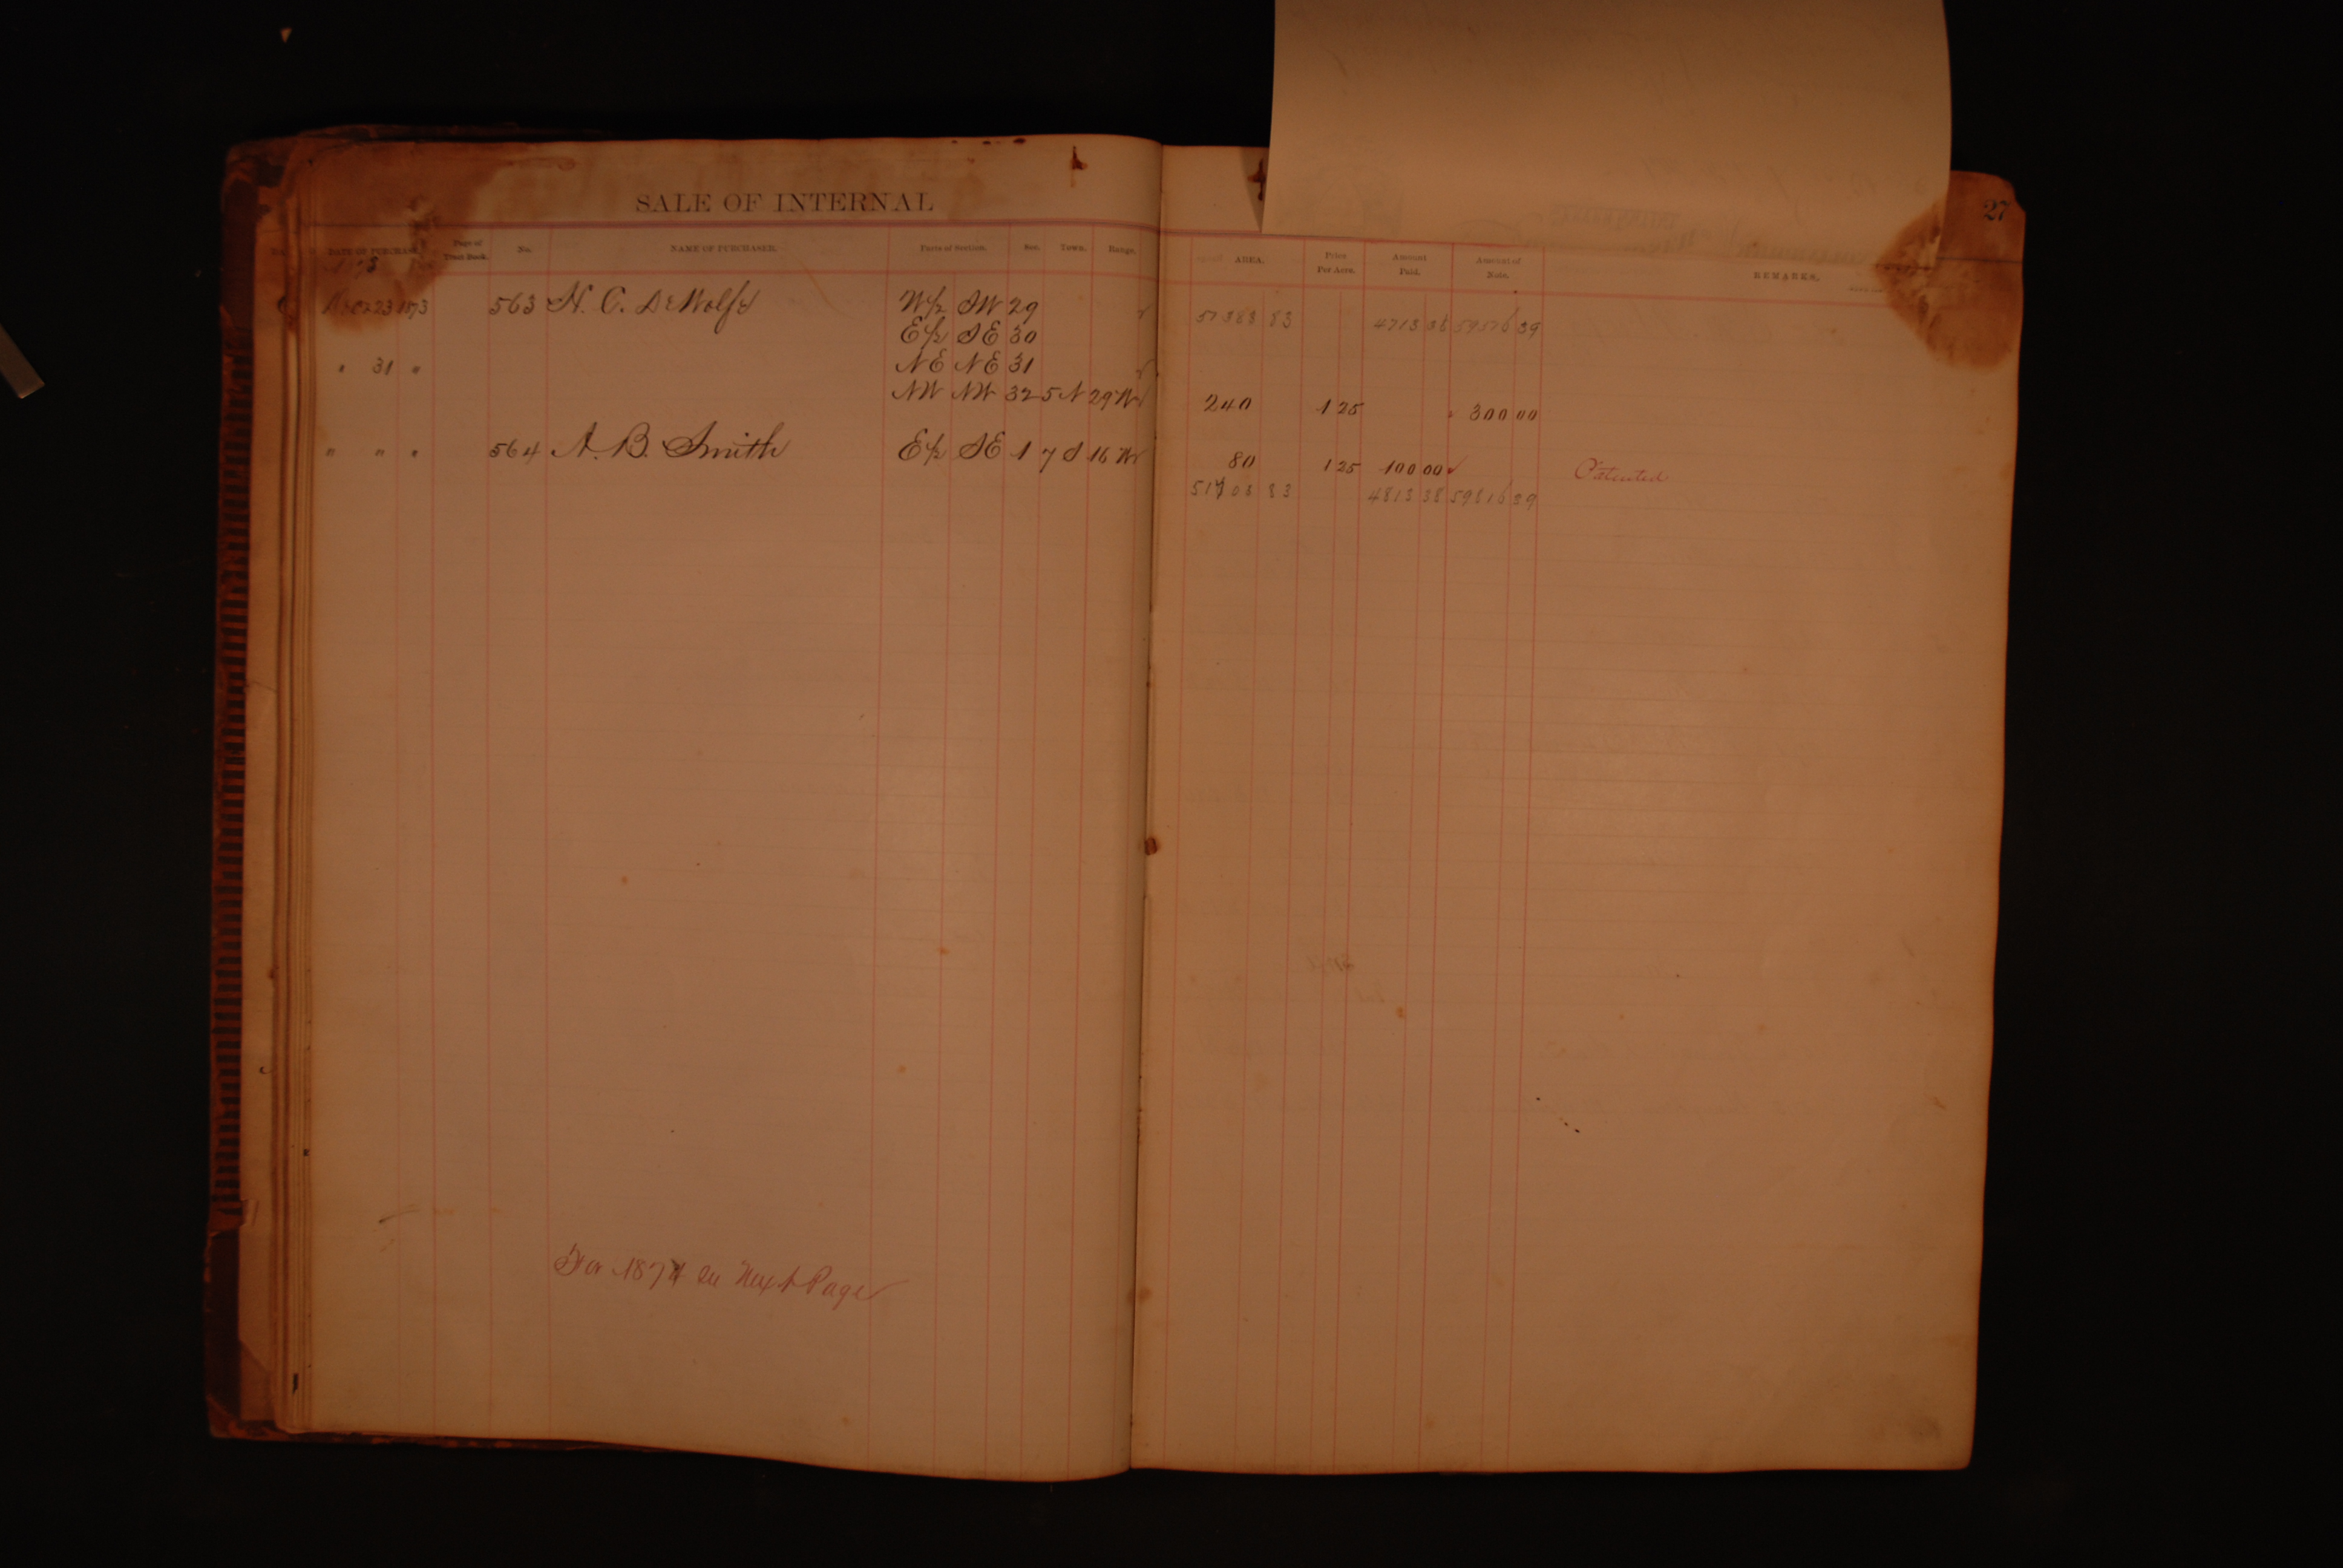 SALE OF INTERNAL
27
DATE OF PURCHASE. Page of Tract Book. No. NAME OF PURCHASER. Parts of Section. Sec. Town. Range. AREA. Price Per Acre. Amount Paid. Amount of Note. REMARKS.
Dec 23 1873 563 N. C. DeWolfe W/2 SW 29 51383 83 4713 38 59516 39
E/2 SE 30
" 31 " NE NE 31
NW NW 32 5N 29W 240 1 25 300 00
" " " 564 A. B. Smith E/2 SE 1 7 S 16 W 80 1 25 100 00 Patented
51703 83 4813 38 59816 39
For 1874 see Next Page